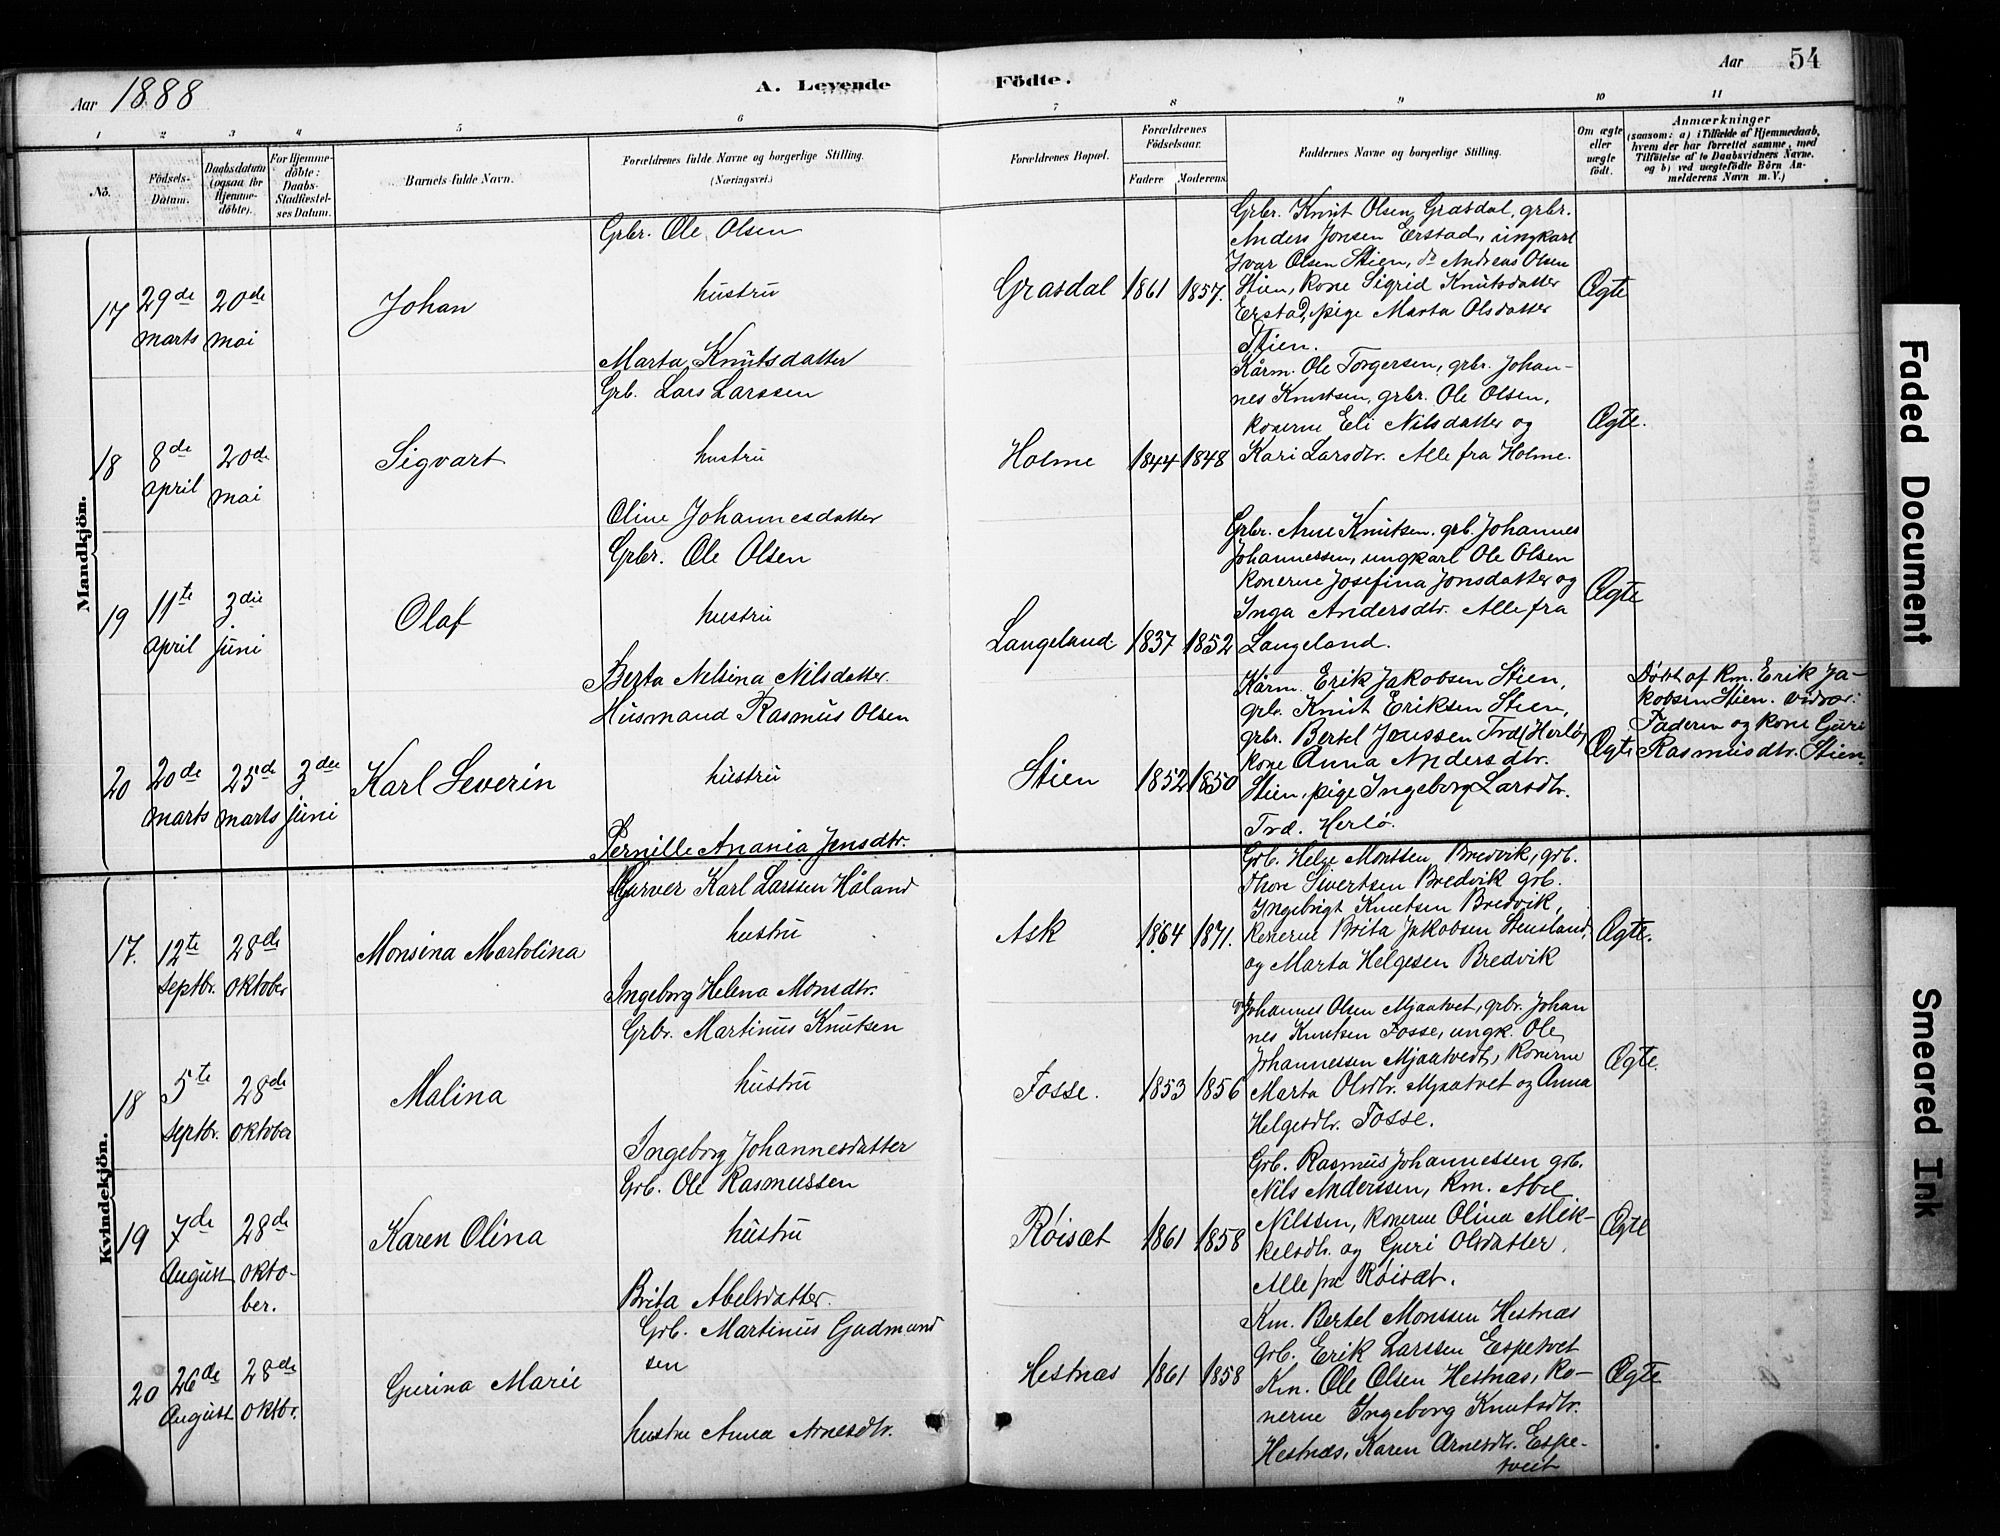 Aar 1888
A. Levende
Födte.
Aar 54
1 2 3 4 5 6 7 8 9 10 11
No.
Födsels-
Datum.
Daabsdatum
(ogsaa for
Hjemme-
döbte).
For Hjemme-
döbte:
Daabs-
Stadfæstel-
ses Datum.
Barnets fulde Navn.
Forældrenes fulde Navne og borgerlige Stilling.
(Næringsvei.)
Forældrenes Bopæl.
Forældrenes
Födselsaar.
Faders Moderens.
Faddernes Navne og borgerlige Stilling.
Om ægte
eller
uægte
født.
Anmærkninger
(saasom: a) i Tilfælde af Hjemmedaab,
hvem der har forrettet samme, med
Tilföielse af to Daabsvidners Navne.
og b) ved uægtefödte Börn An-
melderens Navn m. V.)
Mandkjön.
17
29de
marts
20de
mai
Johan
Grbr. Ole Olsen
hustru
Marta Knutsdatter
Grasdal
1861 1857.
Grbr. Knut Olsen Grasdal, grbr.
Anders Jonsen Erstad, ungkarl
Ivar Olsen Stien, do Andreas Olsen
Stien, kone Sigrid Knutsdatter
Erstad, pige Marta Olsdatter
Stien.
Ægte
18
8de
april
20de
mai
Sigvart
Grb. Lars Larssen
hustru
Oline Johannesdatter
Holme
1844 1848
Kårm. Ole Torgersen, grbr. Johan-
nes Knutsen, grbr. Ole Olsen,
konerne Eli Nilsdatter og
Kari Larsdtr. Alle fra Holme.
Ægte.
19
11te
april
3die
juni
Olaf
Grbr. Ole Olsen
hustru
Berta Nelsina Nilsdatter.
Langeland.
1837 1852
Grbr. Arne Knutsen. grb. Johannes
Johannessen, ungkarl Ole Olsen
konerne Josefina Jonsdatter og
Inga Andersdtr. Alle fra
Langeland.
Ægte
20
20de
marts
25de
marts
3die
juni
Karl Severin
Husmand Rasmus Olsen
hustru
Pernille Anania Jensdtr.
Stien
1852 1850
Kårm. Erik Jakobsen Stien,
grb. Knut Eriksen Stien,
grbr. Bertel Jonssen Tvd. Herlø,
kone Anna Andersdtr.
Stien, pige Ingeborg Larsdtr.
Tvd. Herlö.
Ægte
Döbt af Km. Erik Ja-
kobsen Stien. vidner:
Faderen og kone Guri
Rasmusdtr. Stien.
Kvindekjön.
17.
12te
septbr.
28de
oktober
Monsina Martolina
Garver Karl Larssen Håland
hustru
Ingeborg Helena Monsdtr.
Ask
1864 1871.
Grb. Helge Monssen Bredvik, grb.
Thore Sivertsen Bredvik grb.
Ingebrigt Knutsen Bredvik,
konerne Brita Jakobsen Stensland,
og Marta Helgesen Bredvik
Ægte.
18
5te
septbr.
28de
oktober
Malina
Grbr. Martinus Knutsen
hustru
Ingeborg Johannesdatter
Fosse.
1853 1856
grb. Johannes Olsen Mjaatvet, grbr. Johan
nes Knutsen Fosse, ungk. Ole
Johannessen Mjaatvedt, konerne
Marta Olsdtr. Mjaatvet og Anna
Helgesdtr. Fosse.
Ægte.
19
7de
August
28de
okto-
ber.
Karen Olina
Grb. Ole Rasmussen
hustru
Brita Abelsdatter.
Röisæt
1861 1858
Grb. Rasmus Johannessen grb.
Nils Anderssen, Km. Abel
Nilssen, konerne Olina Mik-
kelsdtr. og Guri Olsdatter.
Alle fra Röisæt.
Ægte
20
26de
August
28de
oktbr.
Gurina Marie
Grb. Martinus Gudmund
sen
hustru Anna Arnesdtr.
Hestnæs
1861 1858
Km. Bertel Monssen Hestnæs
grb. Erik Larssen Espetvet
Km. Ole Olsen Hestnæs, ko-
nerne Ingeborg Knutsdtr.
Hestnæs, Karen Arnesdtr. Espe-
tveit
Ægte
Faded Document
Smeared Ink